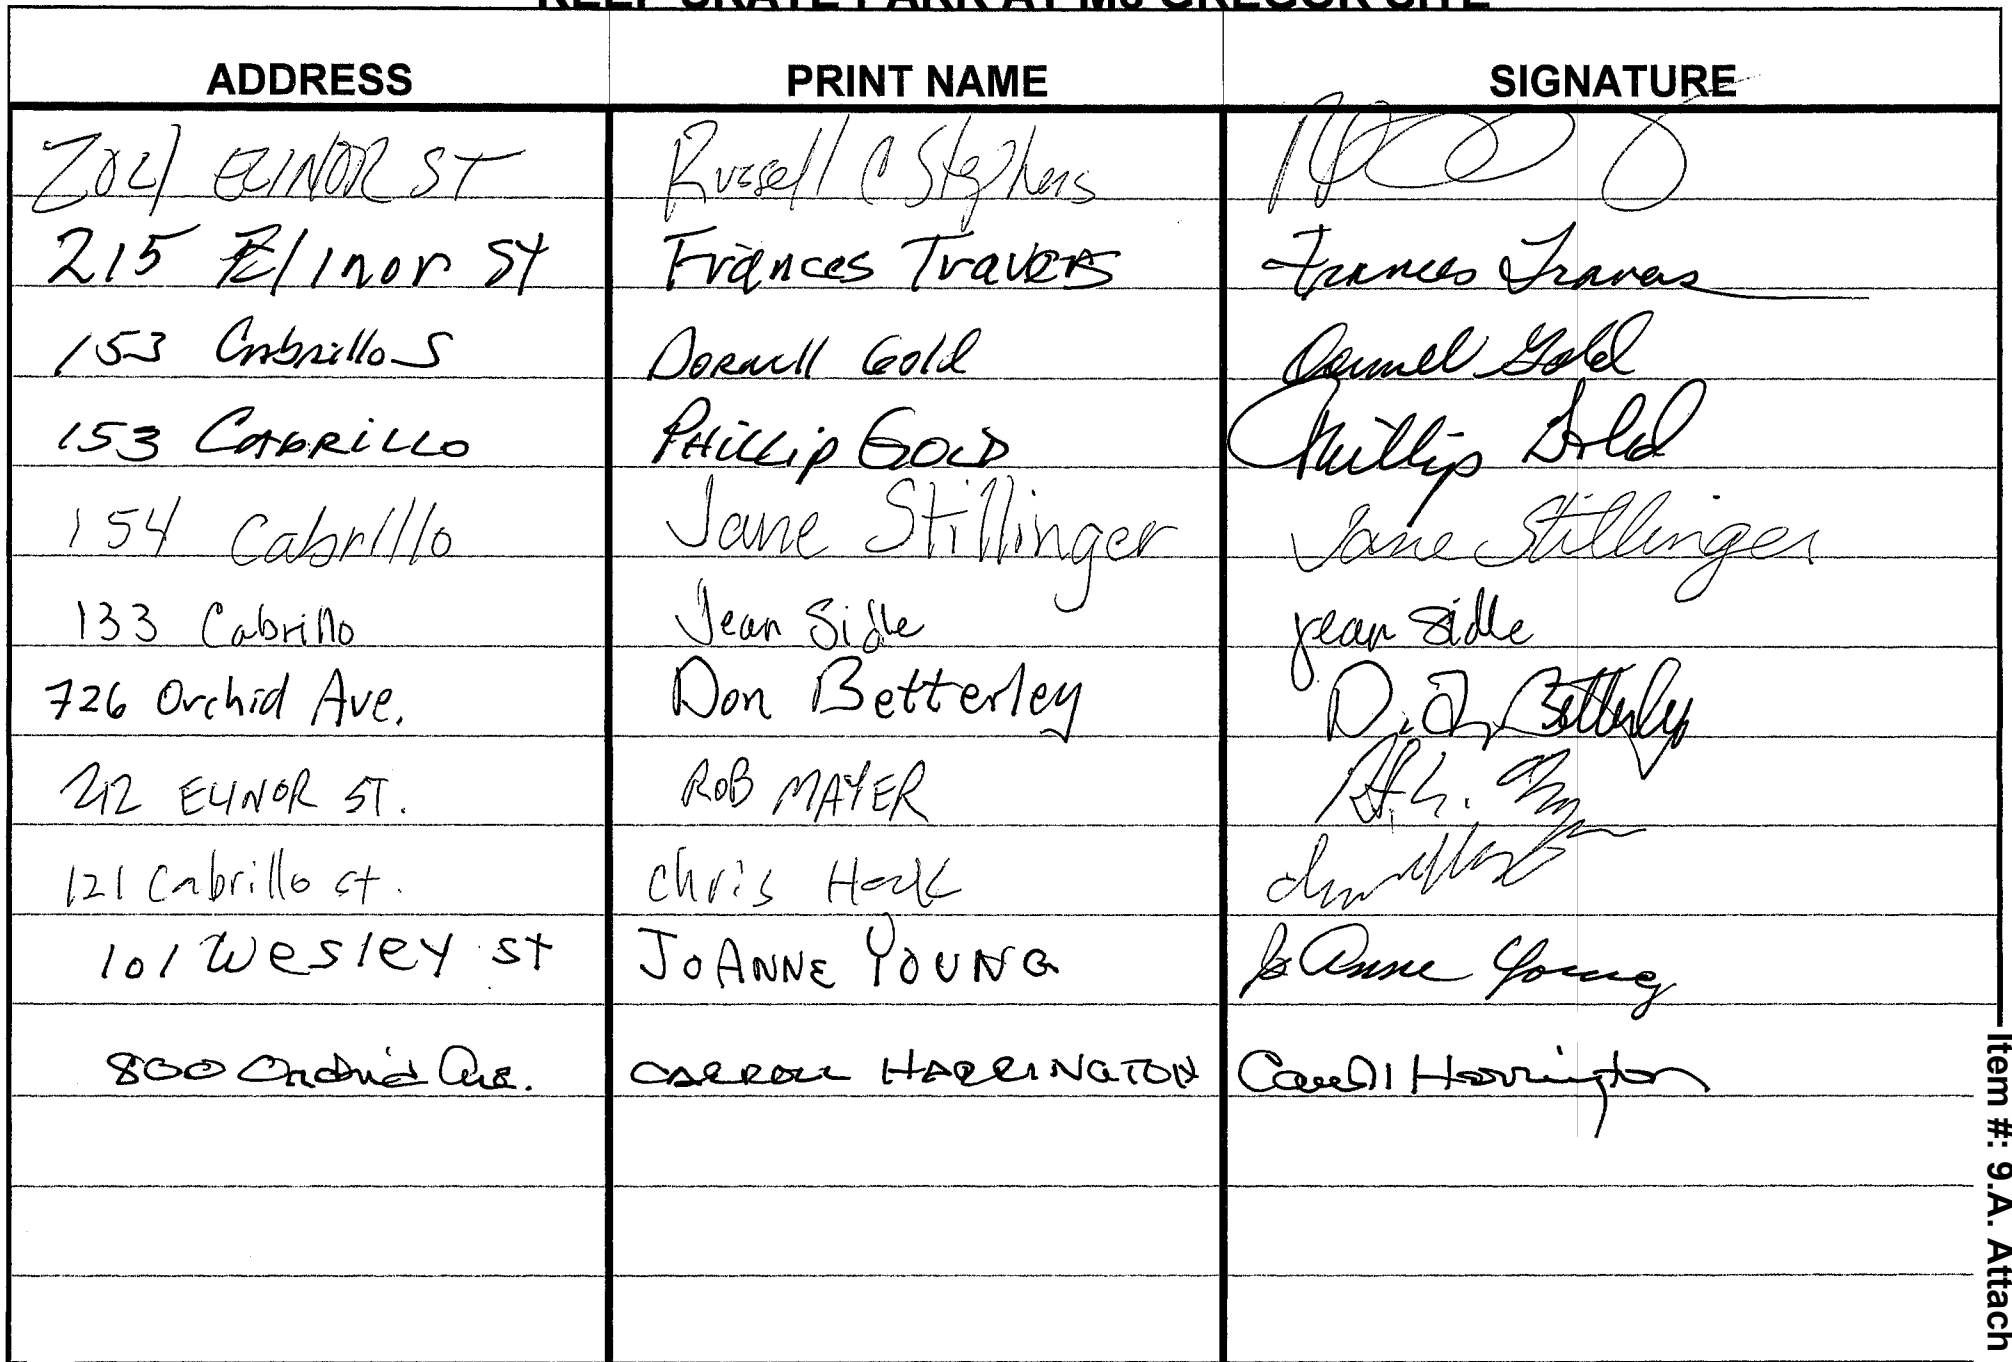 KEEP SKATE PARK AT Mc GREGOR SITE
ADDRESS PRINT NAME SIGNATURE
204 ELINOR ST Russell C Stephens
215 Elinor St Frances Travers Frances Travers
153 Cabrillo S Dornell Gold Dornell Gold
153 CABRILLO PHILLIP GOLD Phillip Gold
154 Cabrillo Jane Stillinger Jane Stillinger
133 Cabrillo Jean Sidle Jean Sidle
726 Orchid Ave. Don Betterley D. Betterley
212 ELINOR ST. ROB MAYER
121 Cabrillo st. Chris Hock
101 Wesley St JOANNE YOUNG JoAnne Young
800 Orchid Ave. CARROLL HARRINGTON Carroll Harrington
Item #: 9.A. Attach